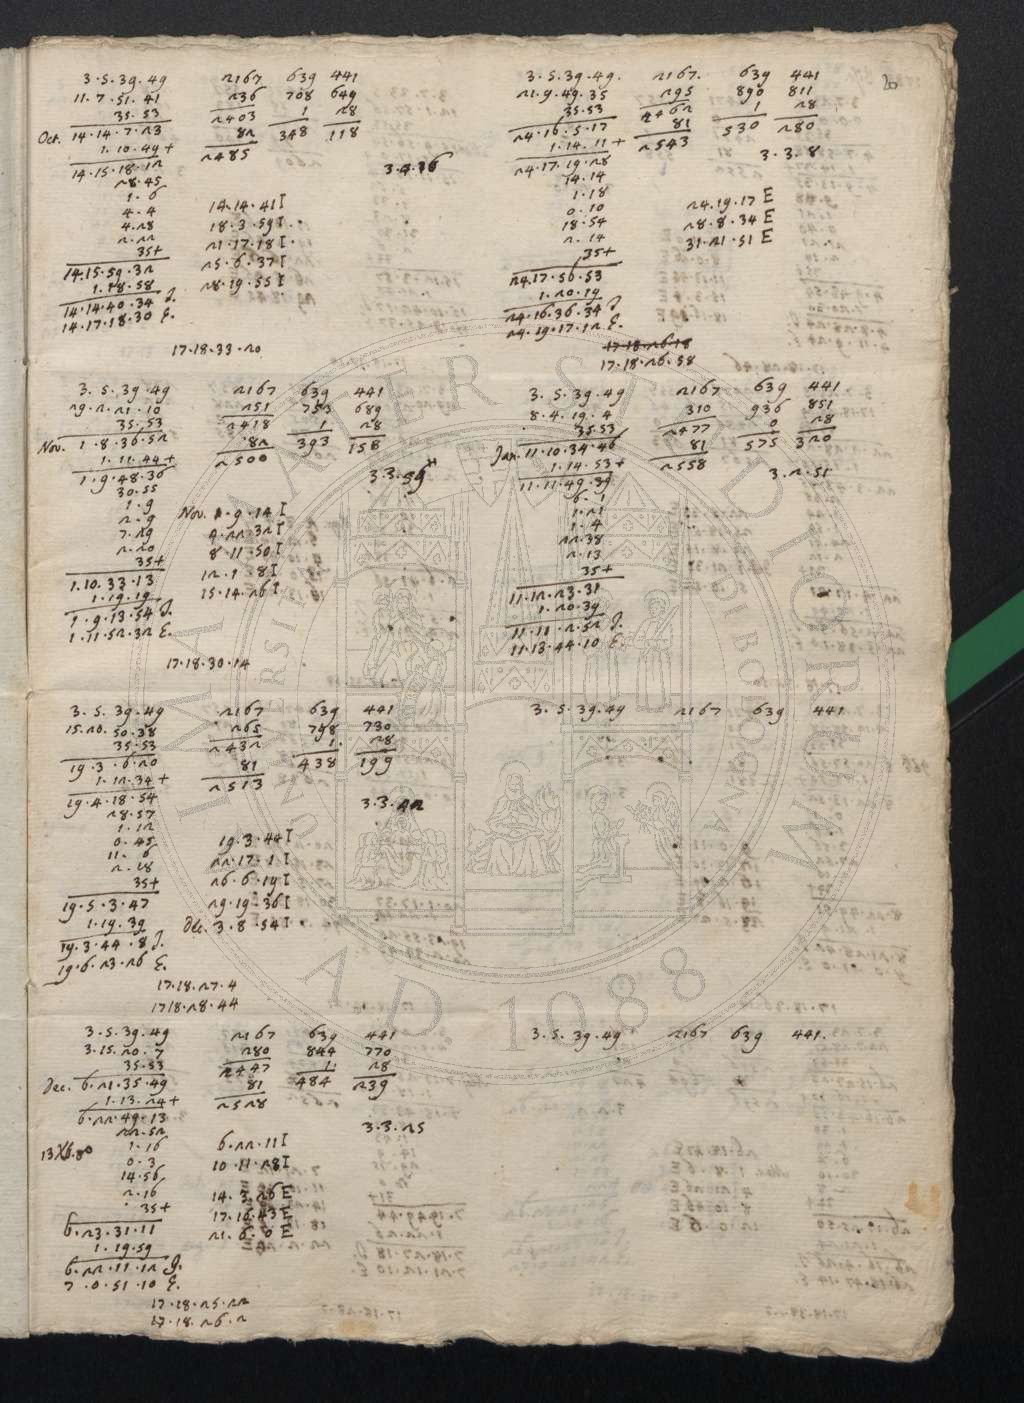 20
3.5.39.49 2167 639 441
11.7.51.41 236 708 649
35.53 2403 1 28
Oct. 14.14.7.23 82 348 118
1.10.49+ 2485
14.15.18.12 3.4.16
28.45
1.6
4.4 14.14.41 I
4.28 18.3.59 I
2.22 21.17.18 I
35+ 25.6.37 I
14.15.59.32 28.19.55 I
1.18.58
14.14.40.34 I.
14.17.18.30 E.
17.18.33.20
3.5.39.49. 2167. 639 441
21.9.49.35 295 890 811
35.53 2462 1 28
24.16.5.17 81 530 280
1.14.11+ 2543
24.17.19.28 3.3.8
14.14
1.18
0.10 24.19.17 E
18.54 28.8.34 E
2.14 31.21.51 E
35+
24.17.56.53
1.20.19
24.16.36.34 I.
24.19.17.12 E.
17.18.26.18
17.18.26.58
3.5.39.49 2167 639 441
29.2.21.10 251 753 689
35.53 2418 1 28
Nov. 1.8.36.52 82 393 158
1.11.44+ 2500
1.9.48.36 3.3.59
30.55
1.9 Nov. 1.9.14 I
2.9 4.22.32 I
7.29 8.11.50 I
2.20 12.1.8 I
35+ 15.14.26 I
1.10.33.13
1.19.19
1.9.13.54 I.
1.11.52.32 E.
17.18.30.14
3.5.39.49 2167 639 441
8.4.19.4 310 936 851
35.53 2477 0 28
Jan. 11.10.34.46 81 575 320
1.14.53+ 2558
11.11.49.39 3.2.51
6.1
1.21
1.4
22.38
2.13
35+
11.12.23.31
1.20.39
11.11.2.52 I.
11.13.44.10 E.
3.5.39.49 2167 639 441
15.20.50.38 265 798 730
35.53 2432 1 28
19.3.6.20 81 438 199
1.12.34+ 2513
19.4.18.54 3.3.42
28.57
1.12
0.45 19.3.44 I
11.6 22.17.1 I
2.18 26.6.19 I
35+ 29.19.36 I
19.5.3.47 Dec. 3.8.54 I
1.19.39
19.3.44.8 I.
19.6.23.26 E.
17.18.27.4
17.18.28.44
3.5.39.49 2167 639 441
3.5.39.49 2167 639 441
3.15.20.7 280 844 770
35.53 2447 1 28
Dec. 6.21.35.49 81 484 239
1.13.24+ 2528
6.22.49.13 3.3.25
22.52
1.16 6.22.11 I
0.3 10.11.28 I
14.56 14.3.26 E
2.16 17.16.43 E
35+ 21.6.0 E
6.23.31.11
1.19.59
6.22.11.12 I.
7.0.51.10 E.
17.18.25.22
17.18.26.2
3.5.39.49 2167 639 441.